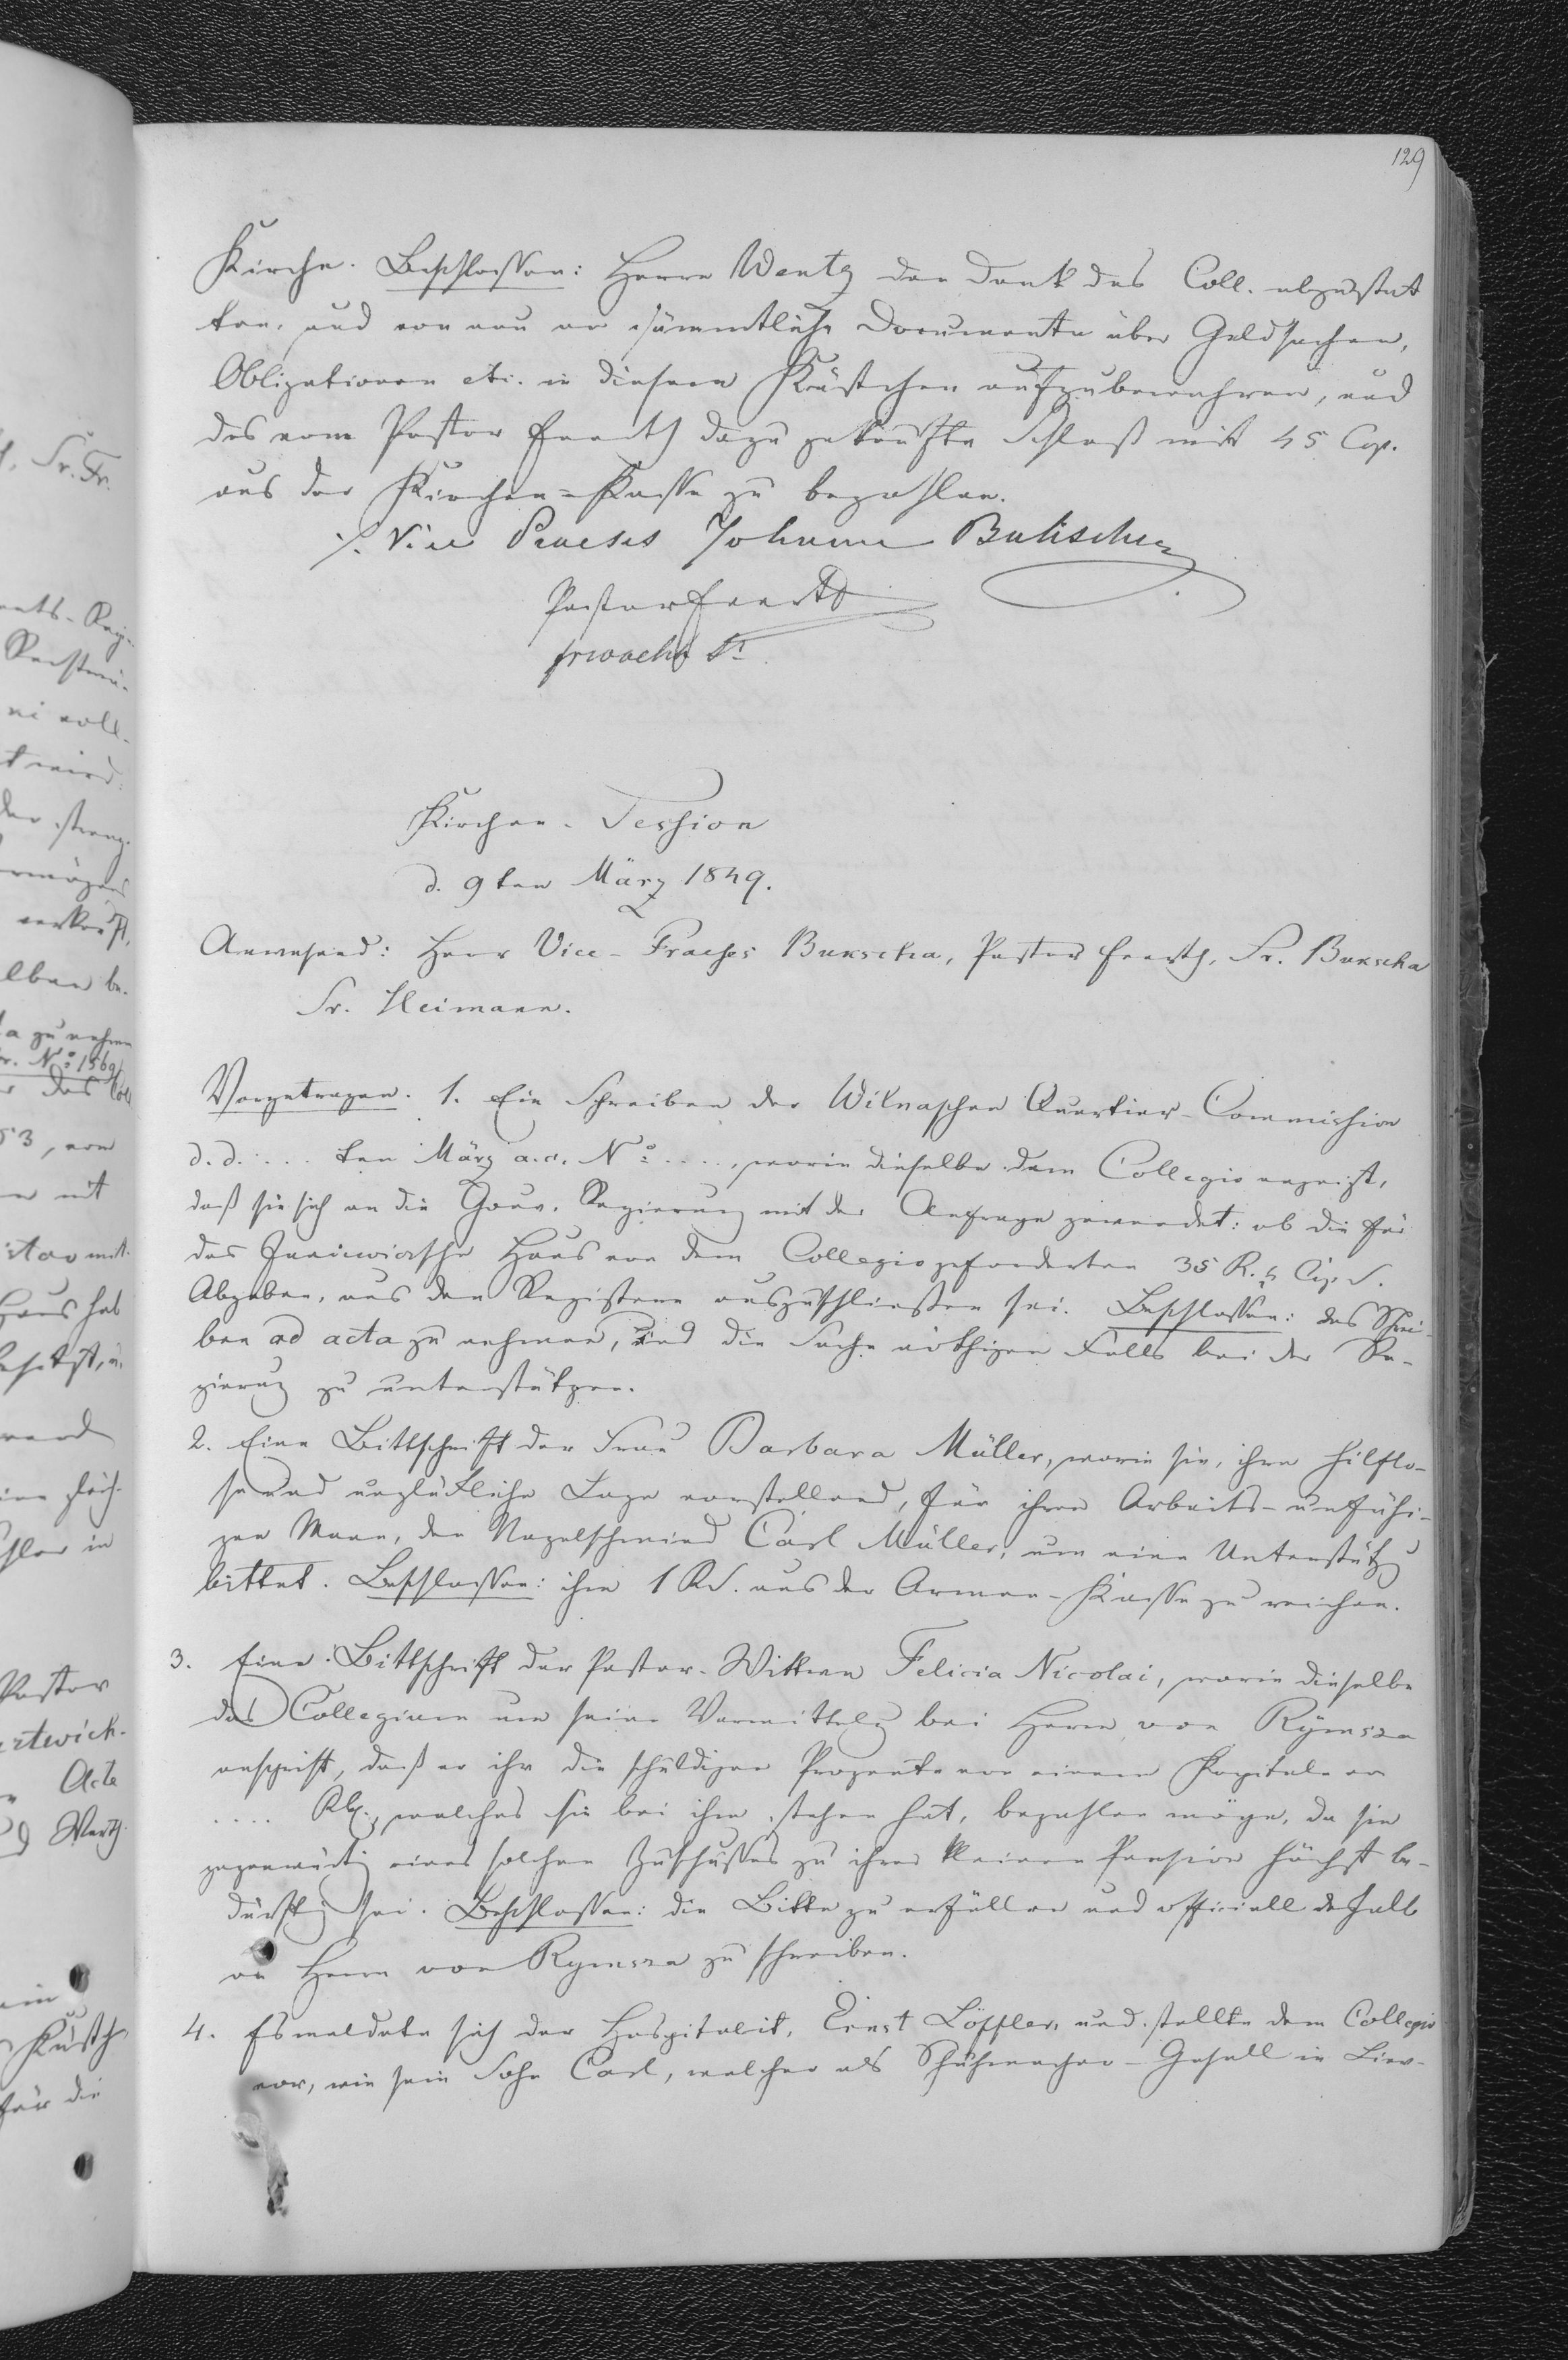 129
Kirche. Beschlossen: Herrn Wentz den Dank des Coll. abzustat
ten, und von nun an sämmtliche Documente über Geldsachen,
Obligationen etc. in diesem Kästchen aufzubewahren, und
das vom Pastor dazu gekaufte Schloß mit 45 Cop.
aus der Kirchen-Kasse zu bezahlen.
Vice Praeses Johann
Pastor
Kirchen-Session
d. 9ten März 1849.
Anwesend: Herr Vice-Praeses Bukscha, Pastor Sr. Bukscha
Sr. Heimann.
Vorgetragen. 1. Ein Schreiben der Wilnaschen Quartier-Commission
d. d. .... ten März a. c. No ...., worin dieselbe dem Collegio anzeigt,
daß sie sich an die Gouv. Regierung mit der Anfrage gewendet: ob die für
das Haus von dem Collegio geforderten 35 R. 4 Cop. S.
Abgaben, aus den Registern auszuschließen sei. Beschlossen: das Schrei-
ben ad acta zu nehmen, und die Sache nöthigen Falls bei der Re-
gierung zu unterstützen.
2. Eine Bittschrift der Frau Barbara Müller, worin sie, ihre hilflo-
se und unglückliche Lage vorstellend, für ihren Arbeits-unfähi-
gen Mann, den Nagelschmied Carl Müller, um eine Unterstützg
bittet. Beschlossen: ihr 1 RS. aus der Armen-Kasse zu reichen.
3. Eine Bittschrift der Pastor-Wittwe Felicia Nicolai, worin dieselbe
das Collegium um seine Vermittelg bei Herrn von Rymsza
anspricht, daß er ihr die schuldigen Prozente von einem Kapitale von
.... Rbl., welches sie bei ihm stehen hat, bezahlen möge, da sie
gegenwärtig eines solchen Zuschußes zu ihrer kleinen Pension höchst be-
dürftig sei. Beschlossen: die Bitte zu erfüllen und officiell deßhalb
an Herrn von Rymsza zu schreiben.
4. Es meldete sich der Hospitalit, Ernst Löffler, und stellte dem Collegio
vor, wie sein Sohn Carl, welcher als Schuhmacher-Gesell in Liev-